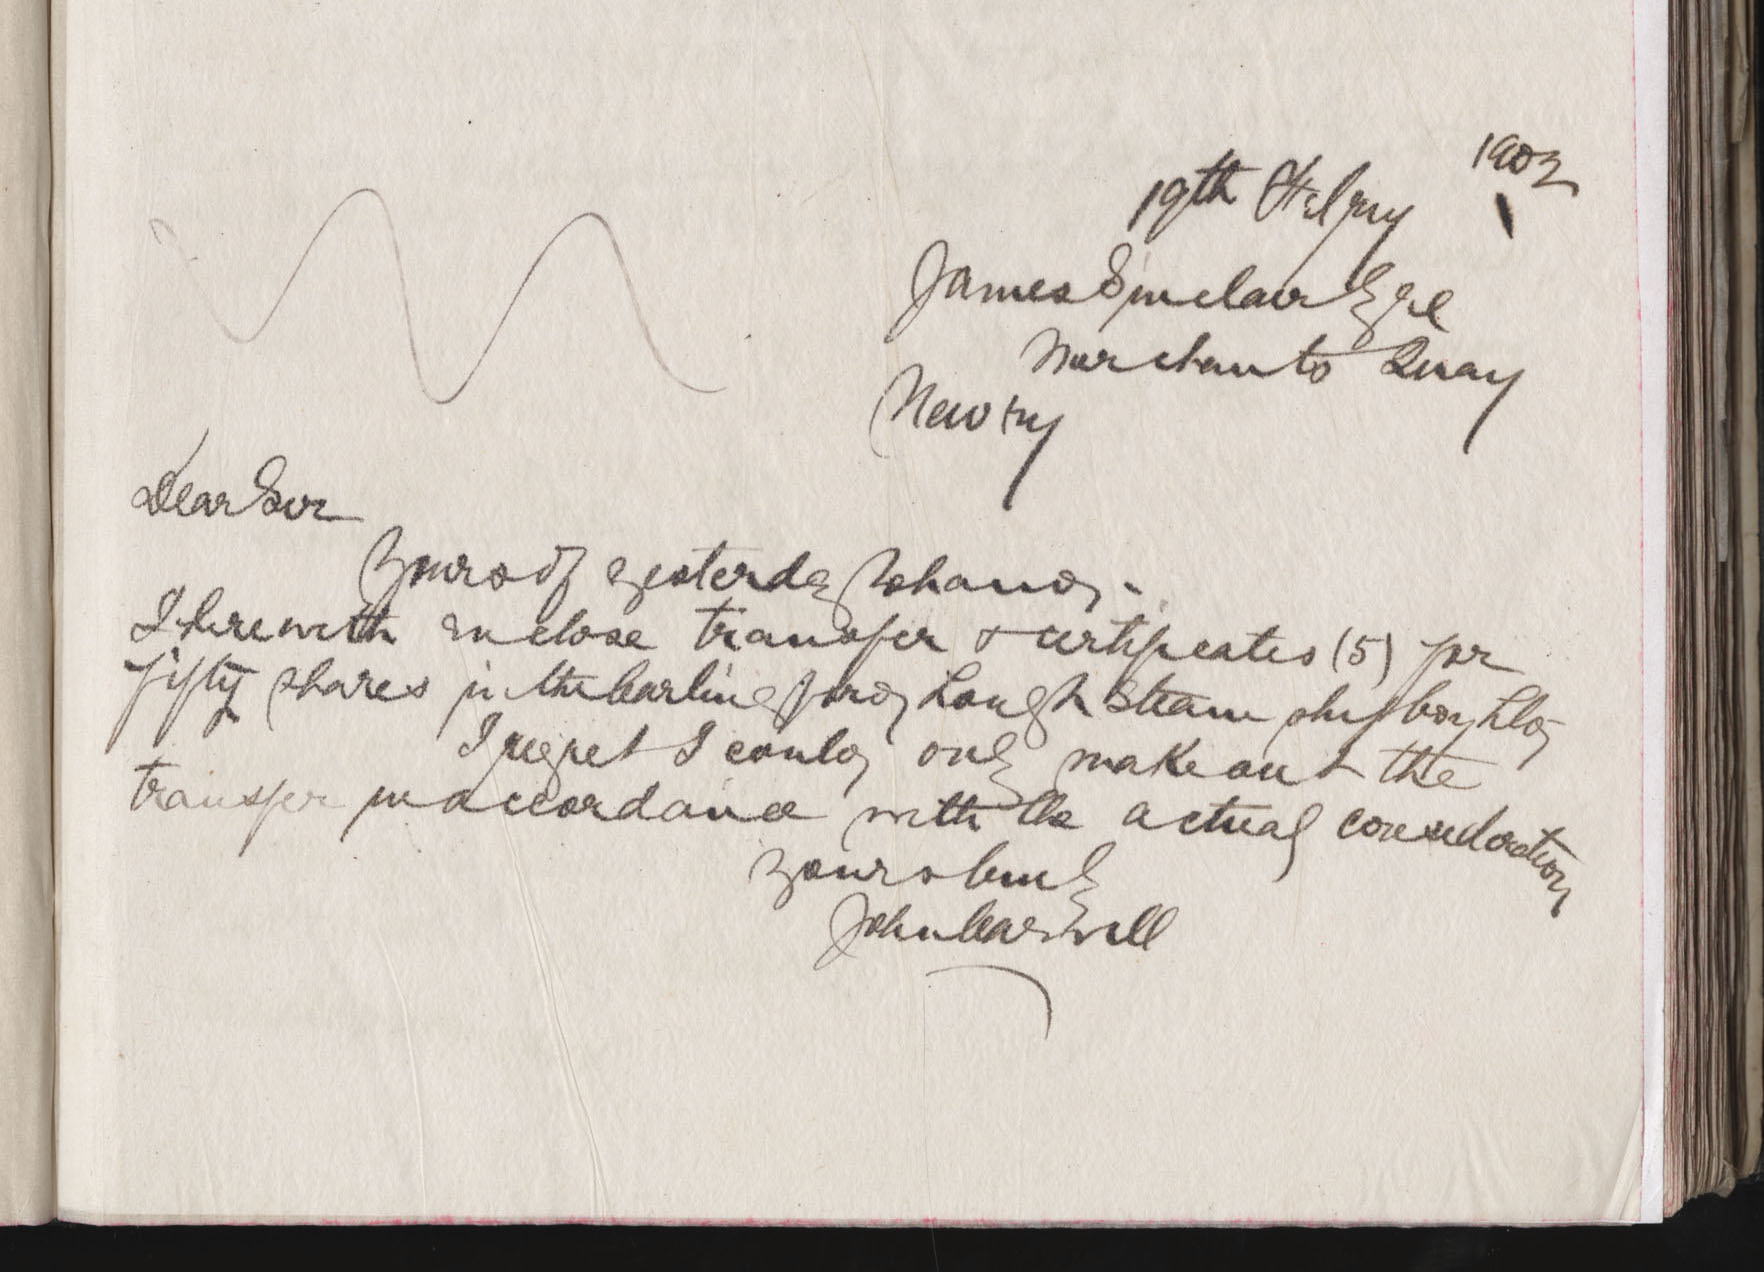 1902
19th Febry
James Sinclair Esqe
Merchants Quay
Newry
Dear Sir
Yours of yesterday to hand.-
I herewith enclose transfer & certificates (5) for
fifty shares in the Carlingford Lough Steam ship Coy Ltd
I regret I could only make out the
transfer in accordance with the actual consideration
Yours truly
John Carswell